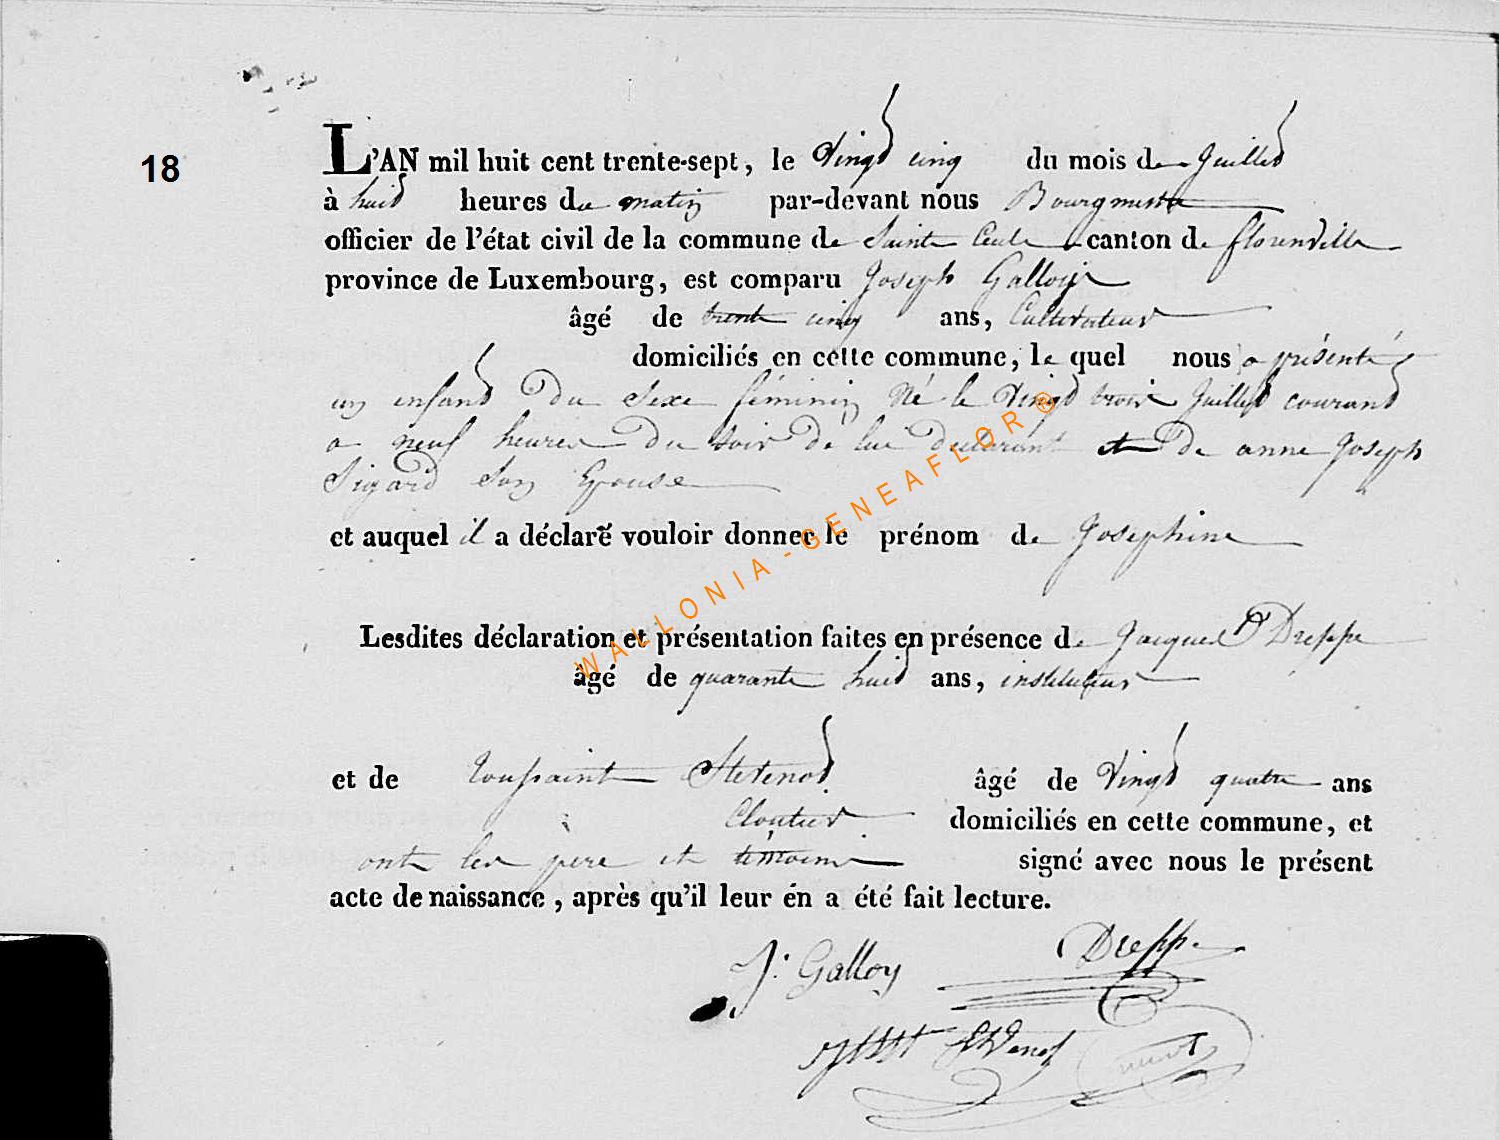 18
L'AN mil huit cent trente-sept, le Vingt cinq du mois de Juillet
à huit heures du matin par-devant nous Bourgmestre
officier de l'état civil de la commune de Sainte Cecile canton de florenville
province de Luxembourg, est comparu Joseph Galloy
âgé de trente cinq ans, Cultivateur
domiciliés en cette commune, le quel nous a présenté
un enfant Du Sexe féminin Né le Vingt trois Juillet courant
a neuf heures Du Soir De lui Declarant et De anne Joseph
Sigard Son Epouse
et auquel il a déclaré vouloir donner le prénom de Josephine
Lesdites déclaration et présentation faites en présence de Jacques Dreppe
âgé de quarante huit ans, instituteur
et de Toussaint Stevenot âgé de Vingt quatre ans
Cloutier domiciliés en cette commune, et
ont les pere et témoins signé avec nous le présent
acte de naissance, après qu'il leur en a été fait lecture.
J: Galloy Dreppe
Stevenot
WALLONIA - GENEAFLOR ®